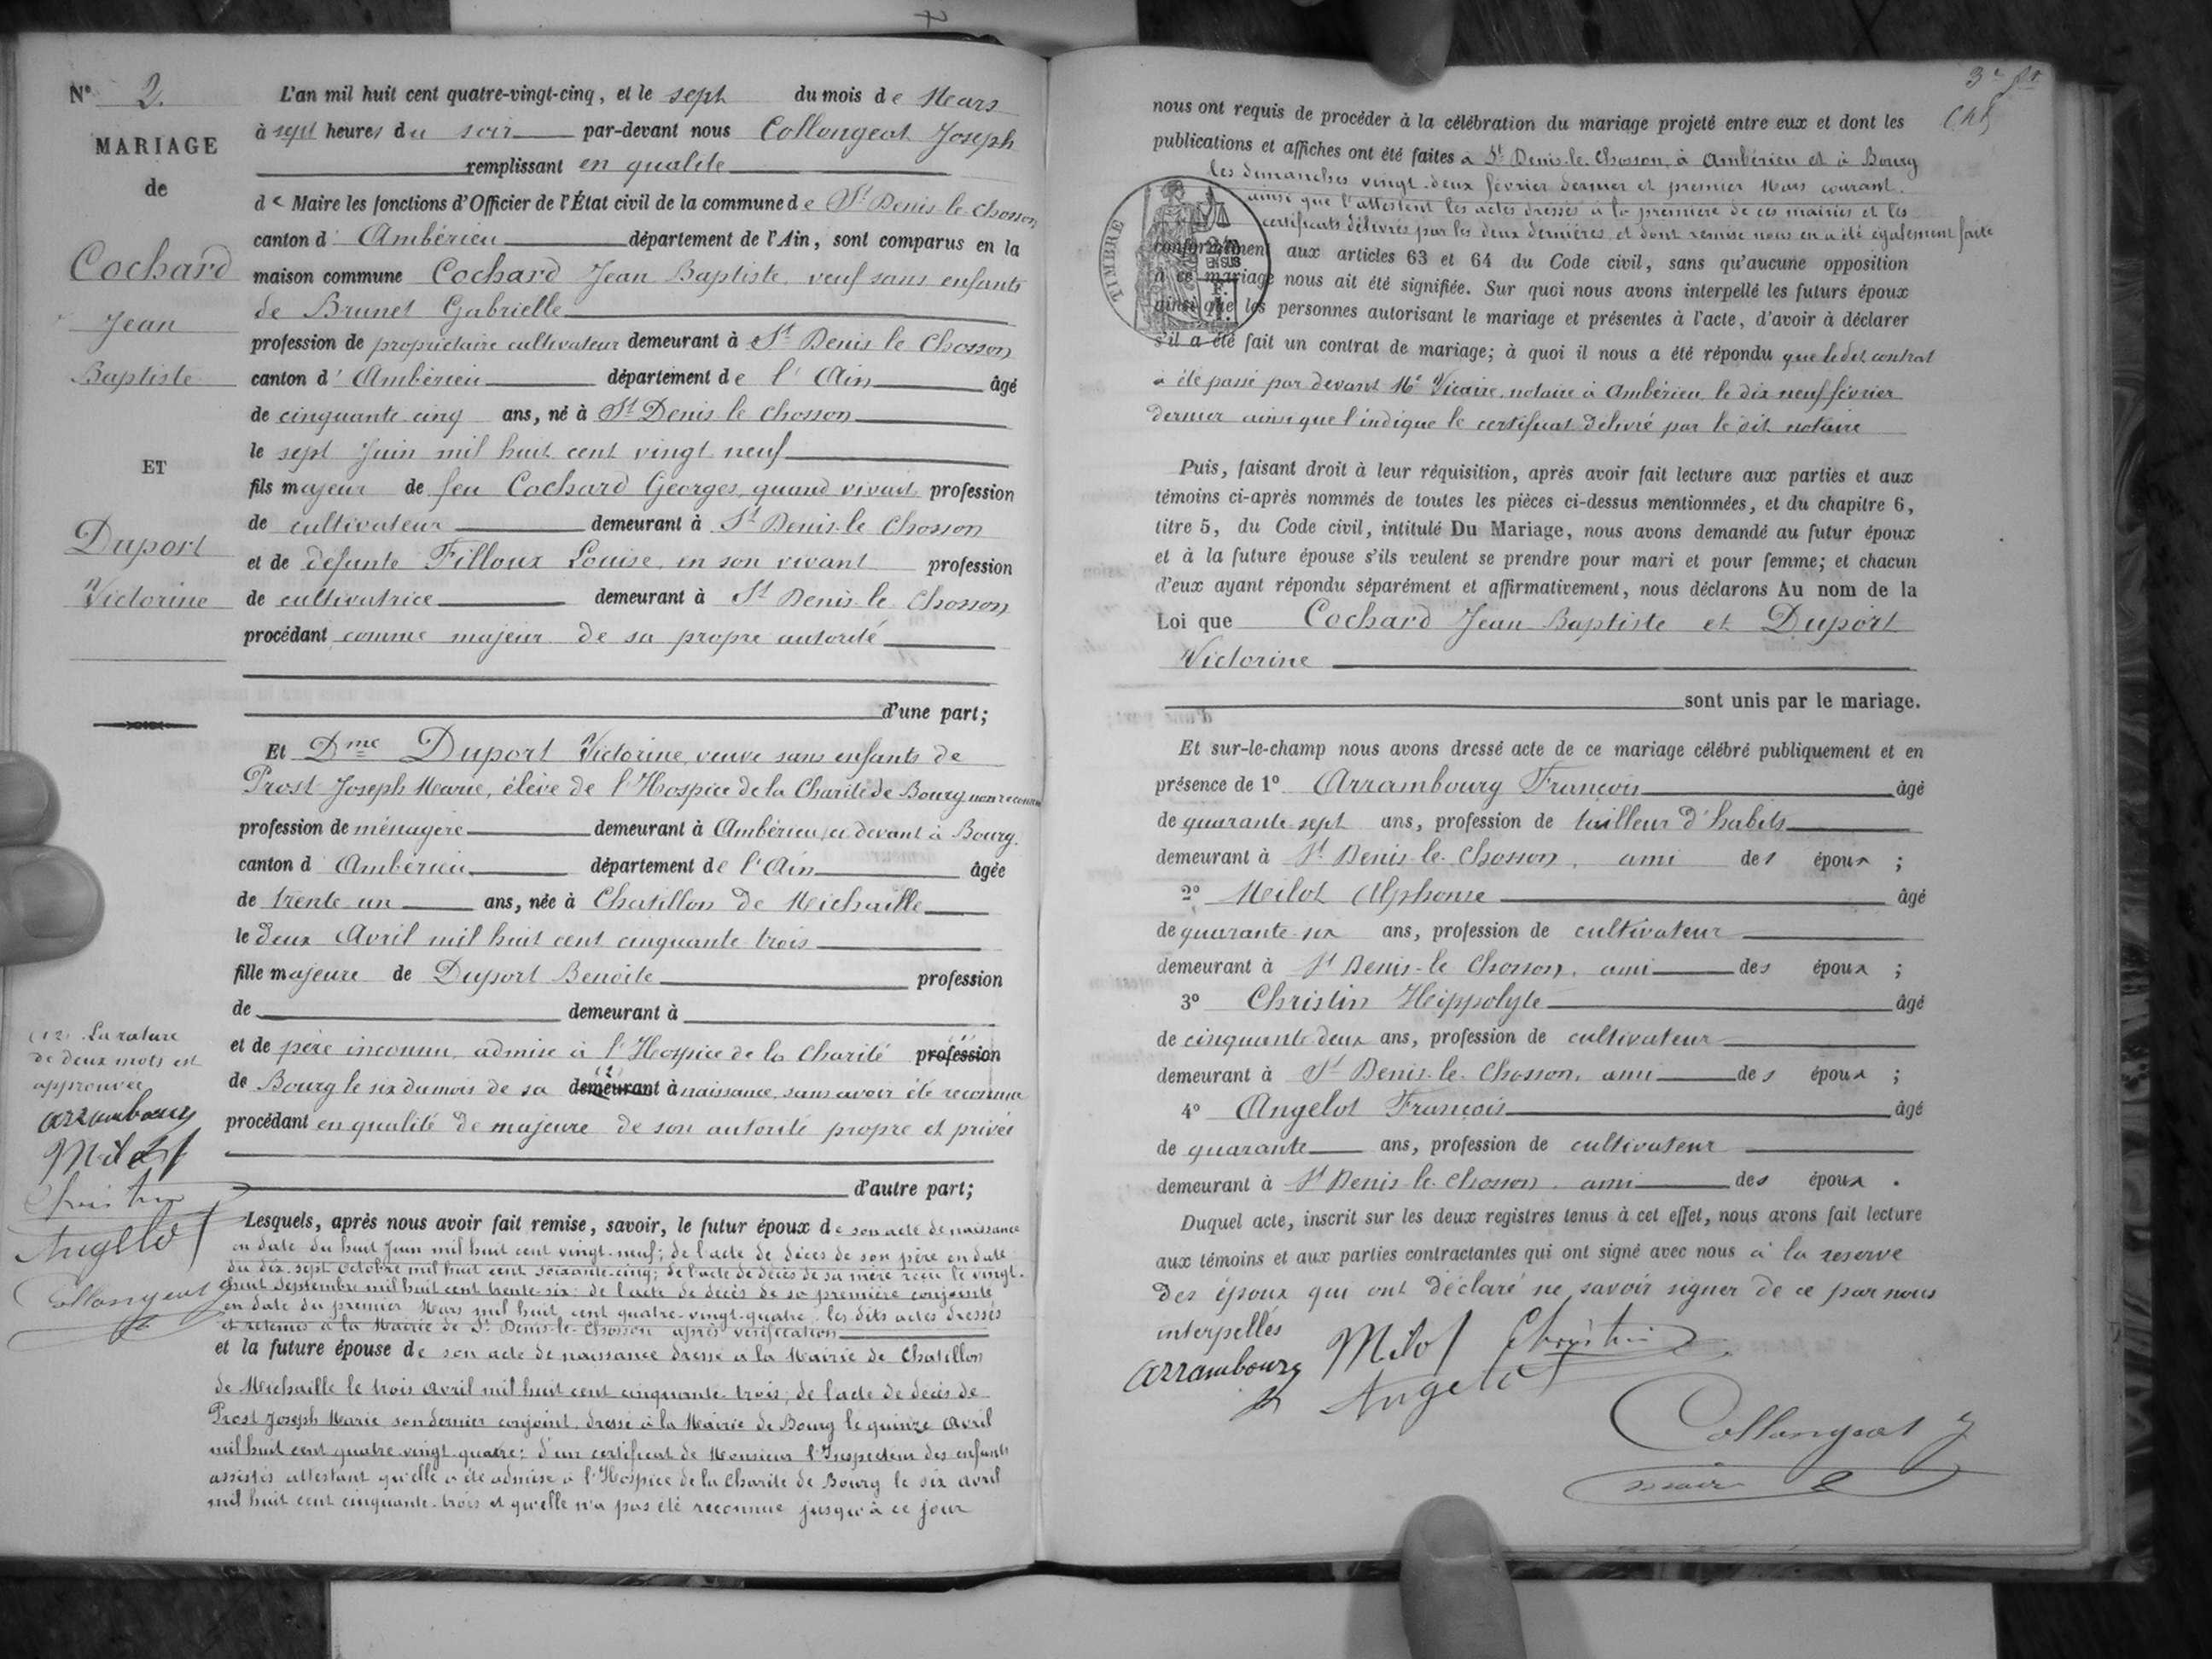 N° 2.
MARIAGE
de
Cochard
Jean
Baptiste
ET
Duport
Victorine
L'an mil huit cent quatre-vingt-cinq, et le sept du mois de Mars
à sept heures du soir par-devant nous Collongeat Joseph
remplissant en qualité
de Maire les fonctions d'Officier de l'État civil de la commune de St Denis le Chosson
canton d'Ambérieu département de l'Ain, sont comparus en la
maison commune Cochard Jean Baptiste, veuf sans enfants
de Brunet Gabrielle
profession de propriétaire cultivateur demeurant à St Denis le Chosson
canton d'Ambérieu département de l'Ain âgé
de cinquante cinq ans, né à St Denis le Chosson
le sept Juin mil huit cent vingt neuf
fils majeur de feu Cochard Georges, quand vivait profession
de cultivateur demeurant à St Denis-le Chosson
et de défunte Filloux Louise, en son vivant profession
de cultivatrice demeurant à St Denis-le Chosson
procédant comme majeur de sa propre autorité
d'une part;
Et Dme Duport Victorine, veuve sans enfants de
Prost Joseph Marie, élève de l'Hospice de la Charité de Bourg non reconnue
profession de ménagère demeurant à Ambérieu, ci devant à Bourg.
canton d'Ambérieu département de l'Ain âgée
de trente un ans, née à Chatillon de Michaille
le deux Avril mil huit cent cinquante trois
fille majeure de Duport Benoite profession
de demeurant à
et de père inconnu, admise à l'Hospice de la Charité profession
de Bourg le six du mois de sa demeurant à naissance, sans avoir été reconnue
procédant en qualité de majeure de son autorité propre et privée
d'autre part;
(1 2) La rature
de deux mots est
approuvée
Arrambourg
Milot
Christin
Angelot
Collongeat J
Lesquels, après nous avoir fait remise, savoir, le futur époux de son acte de naissance
en date du huit Juin mil huit cent vingt-neuf; de l'acte de décès de son père en date
du dix-sept Octobre mil huit cent soixante-cinq; de l'acte de décès de sa mère reçu le vingt-
huit Septembre mil huit cent trente-six; de l'acte de décès de sa première conjointe
en date du premier Mars mil huit cent quatre-vingt-quatre, les dits actes dressés
et retenus à la Mairie de St Denis-le-Chosson après vérification
et la future épouse de son acte de naissance dressé à la Mairie de Chatillon
de Michaille le trois Avril mil huit cent cinquante-trois; de l'acte de décès de
Prost Joseph Marie son dernier conjoint, dressé à la Mairie de Bourg le quinze Avril
mil huit cent quatre vingt-quatre; d'un certificat de Monsieur l'Inspecteur des enfants
assistés attestant qu'elle a été admise à l'Hospice de la Charité de Bourg le six Avril
mil huit cent cinquante-trois et qu'elle n'a pas été reconnue jusqu'à ce jour
nous ont requis de procéder à la célébration du mariage projeté entre eux et dont les
publications et affiches ont été faites à St Denis-le-Chosson, à Ambérieu et à Bourg
les dimanches vingt-deux février dernier et premier Mars courant.
ainsi que l'attestent les actes dressés à la première de ces mairies et les
certificats délivrés par les deux dernières et dont remise nous en a été également faite
TIMBRE
conformément aux articles 63 et 64 du Code civil, sans qu'aucune opposition
à ce mariage nous ait été signifiée. Sur quoi nous avons interpellé les futurs époux
ainsi que les personnes autorisant le mariage et présentes à l'acte, d'avoir à déclarer
s'il a été fait un contrat de mariage; à quoi il nous a été répondu que ledit contrat
a été passé par devant Me Vicaire, notaire à Ambérieu, le dix neuf février
dernier ainsi que l'indique le certificat délivré par le dit notaire
Puis, faisant droit à leur réquisition, après avoir fait lecture aux parties et aux
témoins ci-après nommés de toutes les pièces ci-dessus mentionnées, et du chapitre 6,
titre 5, du Code civil, intitulé Du Mariage, nous avons demandé au futur époux
et à la future épouse s'ils veulent se prendre pour mari et pour femme; et chacun
d'eux ayant répondu séparément et affirmativement, nous déclarons Au nom de la
Loi que Cochard Jean Baptiste et Duport
Victorine
sont unis par le mariage.
Et sur-le-champ nous avons dressé acte de ce mariage célébré publiquement et en
présence de 1° Arrambourg François âgé
de quarante sept ans, profession de tailleur d'habits
demeurant à St Denis-le-Chosson, ami des époux ;
2° Milot Alphonse âgé
de quarante-six ans, profession de cultivateur
demeurant à St Denis-le Chosson, ami des époux ;
3° Christin Hippolyte âgé
de cinquante-deux ans, profession de cultivateur
demeurant à St Denis-le-Chosson, ami des époux ;
4° Angelot François âgé
de quarante ans, profession de cultivateur
demeurant à St Denis-le-Chosson, ami des époux .
Duquel acte, inscrit sur les deux registres tenus à cet effet, nous avons fait lecture
aux témoins et aux parties contractantes qui ont signé avec nous à la réserve
des époux qui ont déclaré ne savoir signer de ce par nous
interpellés
Arrambourg Milot Christin
Angelot
Collongeat J
maire